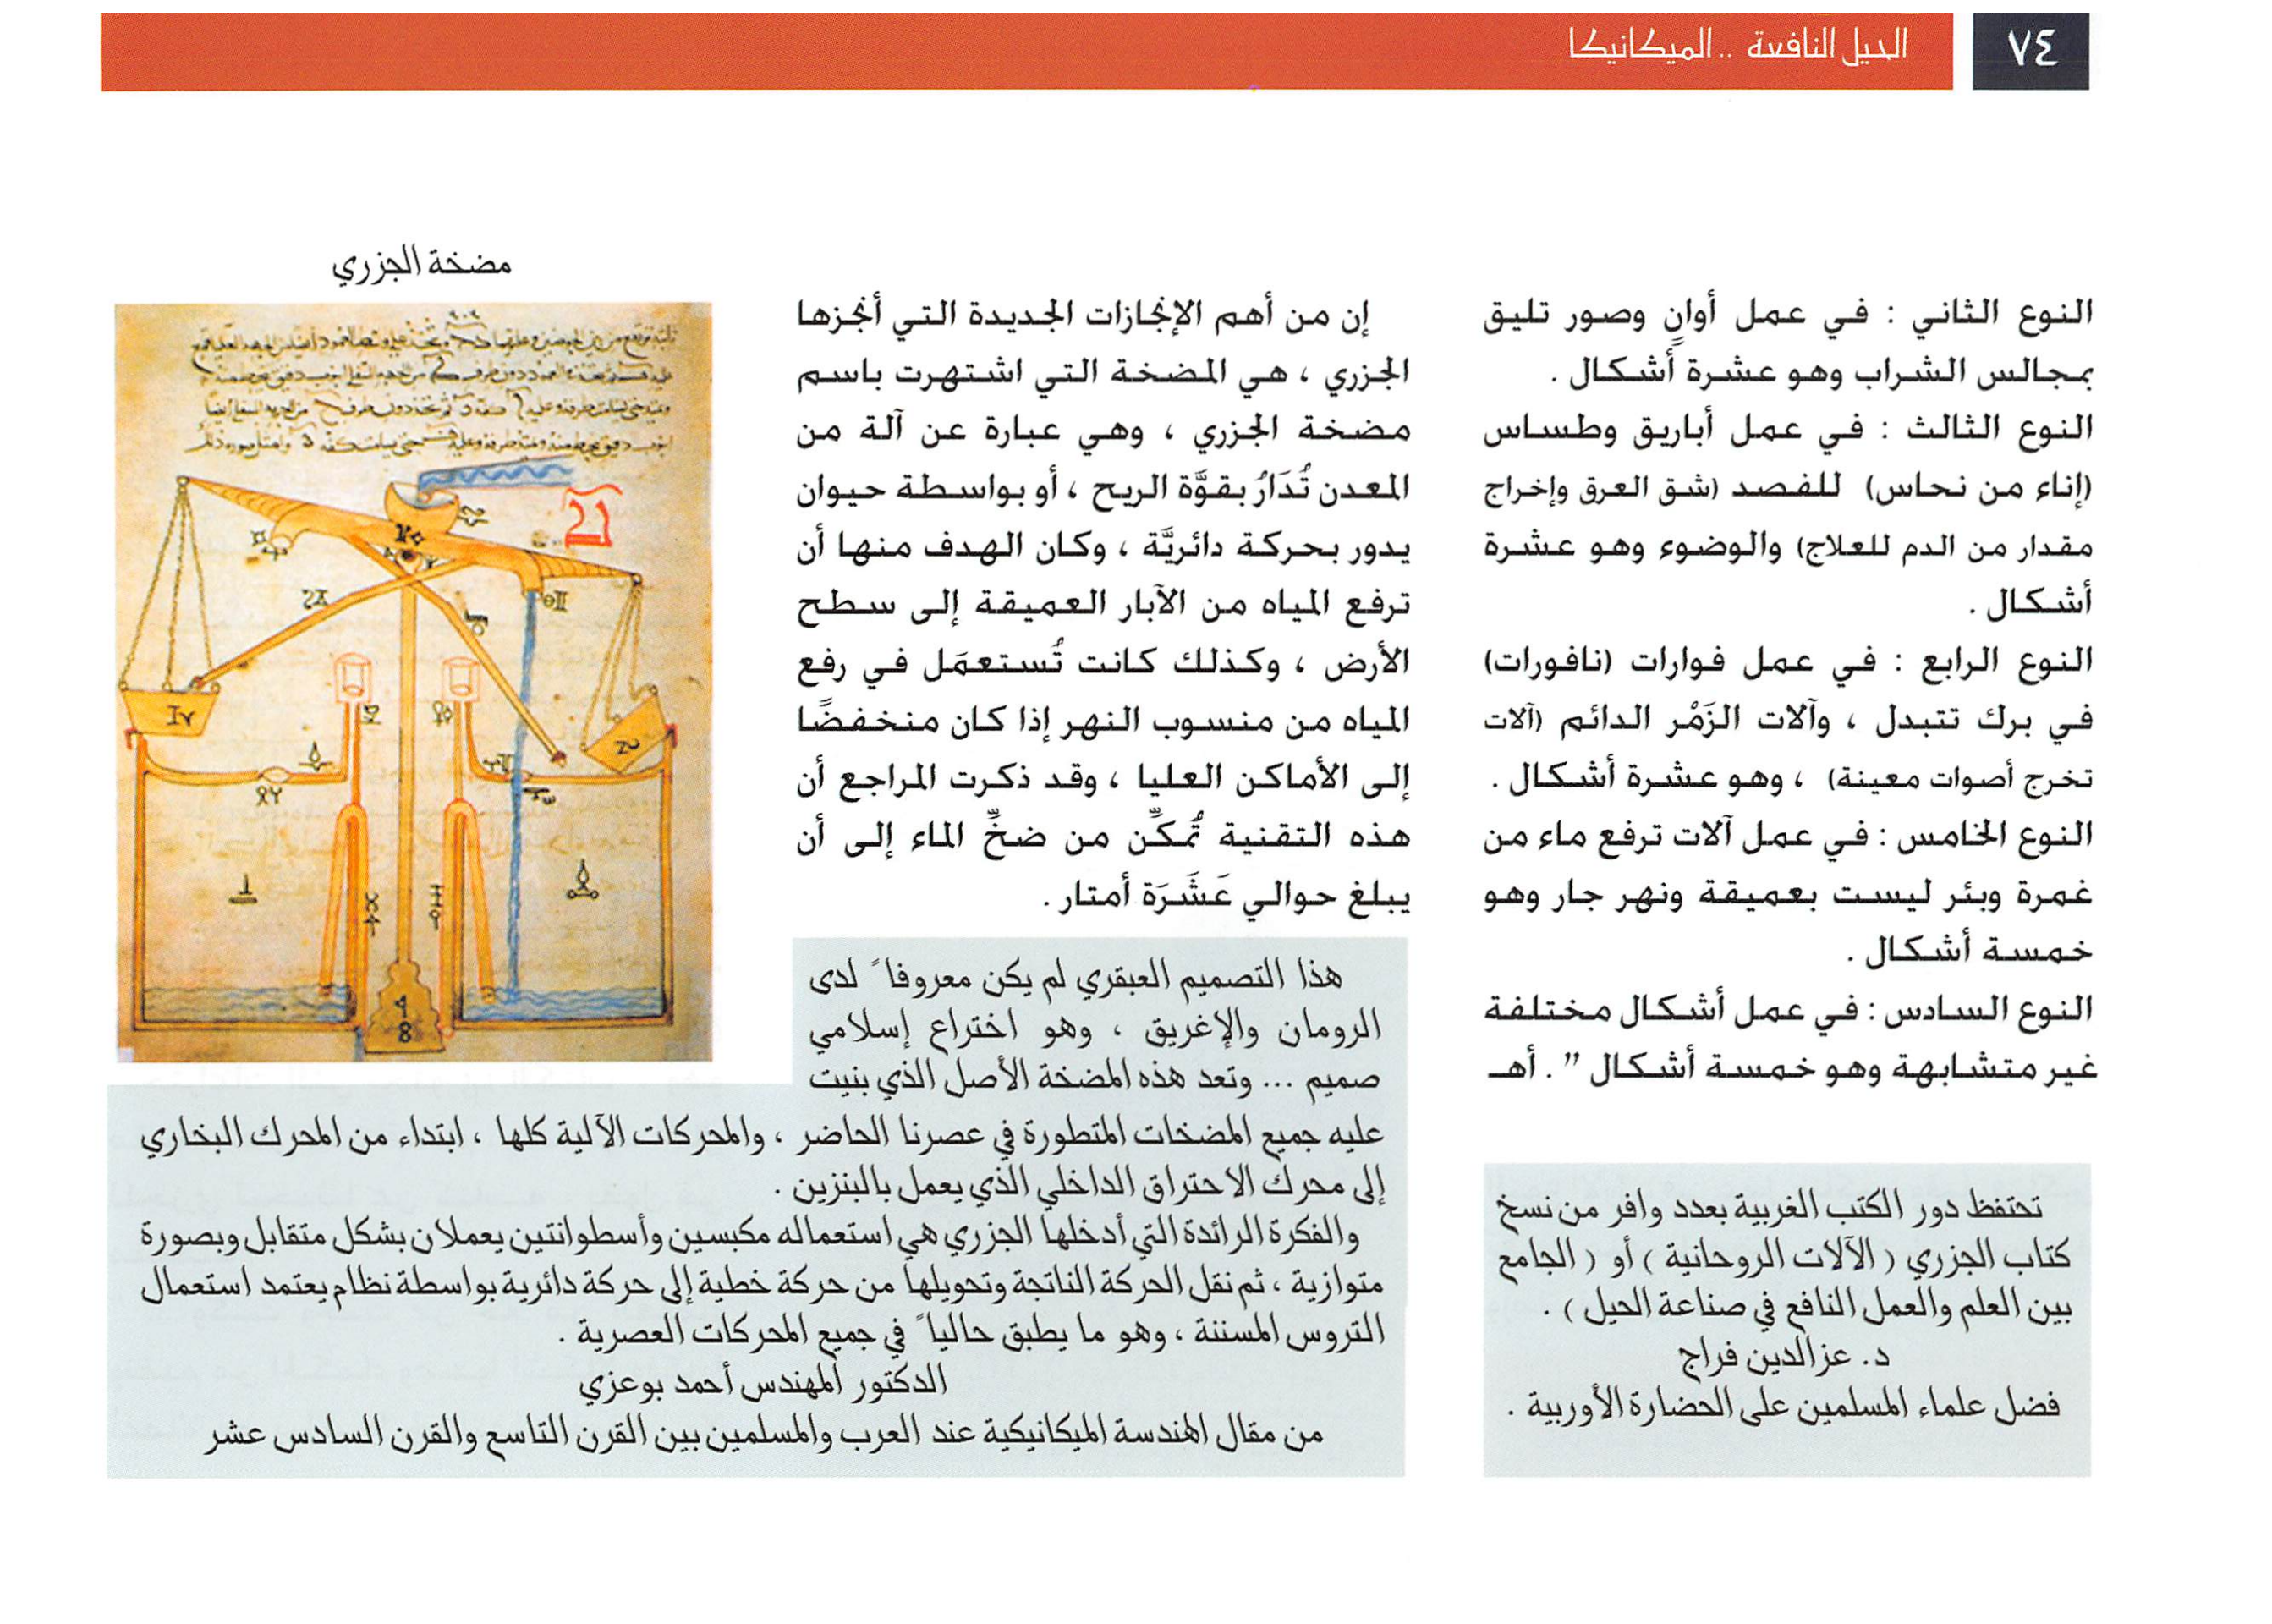 ٧٤
الحيل النافعة .. الميكانيكا
النوع الثاني : في عمل أوانٍ وصور تليق
بمجالس الشراب وهو عشرة أشكال .
النوع الثالث : في عمل أباريق وطساس
(إناء من نحاس) للفصد (شق العرق وإخراج
مقدار من الدم للعلاج) والوضوء وهو عشرة
أشكال .
النوع الرابع : في عمل فوارات (نافورات)
في برك تتبدل ، وآلات الزَمْر الدائم (آلات
تخرج أصوات معينة) ، وهو عشرة أشكال .
النوع الخامس : في عمل آلات ترفع ماء من
غمرة وبئر ليست بعميقة ونهر جار وهو
خمسة أشكال .
النوع السادس : في عمل أشكال مختلفة
غير متشابهة وهو خمسة أشكال ” . أهـ
تحتفظ دور الكتب الغربية بعدد وافر من نسخ
كتاب الجزري ( الآلات الروحانية ) أو ( الجامع
بين العلم والعمل النافع في صناعة الحيل ) .
د. عزالدين فراج
فضل علماء المسلمين على الحضارة الأوربية .
إن من أهم الإنجازات الجديدة التي أنجزها
الجزري ، هي المضخة التي اشتهرت باسم
مضخة الجزري ، وهي عبارة عن آلة من
المعدن تُدَارُ بقوَّة الريح ، أو بواسطة حيوان
يدور بحركة دائريَّة ، وكان الهدف منها أن
ترفع المياه من الآبار العميقة إلى سطح
الأرض ، وكذلك كانت تُستعمَل في رفع
المياه من منسوب النهر إذا كان منخفضًا
إلى الأماكن العليا ، وقد ذكرت المراجع أن
هذه التقنية تُمكِّن من ضخِّ الماء إلى أن
يبلغ حوالي عَشَرَة أمتار .
مضخة الجزري
هذا التصميم العبقري لم يكن معروفاً لدى
الرومان والإغريق ، وهو اختراع إسلامي
صميم ... وتعد هذه المضخة الأصل الذي بنيت
عليه جميع المضخات المتطورة في عصرنا الحاضر ، والمحركات الآلية كلها ، ابتداء من المحرك البخاري
إلى محرك الاحتراق الداخلي الذي يعمل بالبنزين .
والفكرة الرائدة التي أدخلها الجزري هي استعماله مكبسين وأسطوانتين يعملان بشكل متقابل وبصورة
متوازية ، ثم نقل الحركة الناتجة وتحويلها من حركة خطية إلى حركة دائرية بواسطة نظام يعتمد استعمال
التروس المسننة ، وهو ما يطبق حالياً في جميع المحركات العصرية .
الدكتور المهندس أحمد بوعزي
من مقال الهندسة الميكانيكية عند العرب والمسلمين بين القرن التاسع والقرن السادس عشر